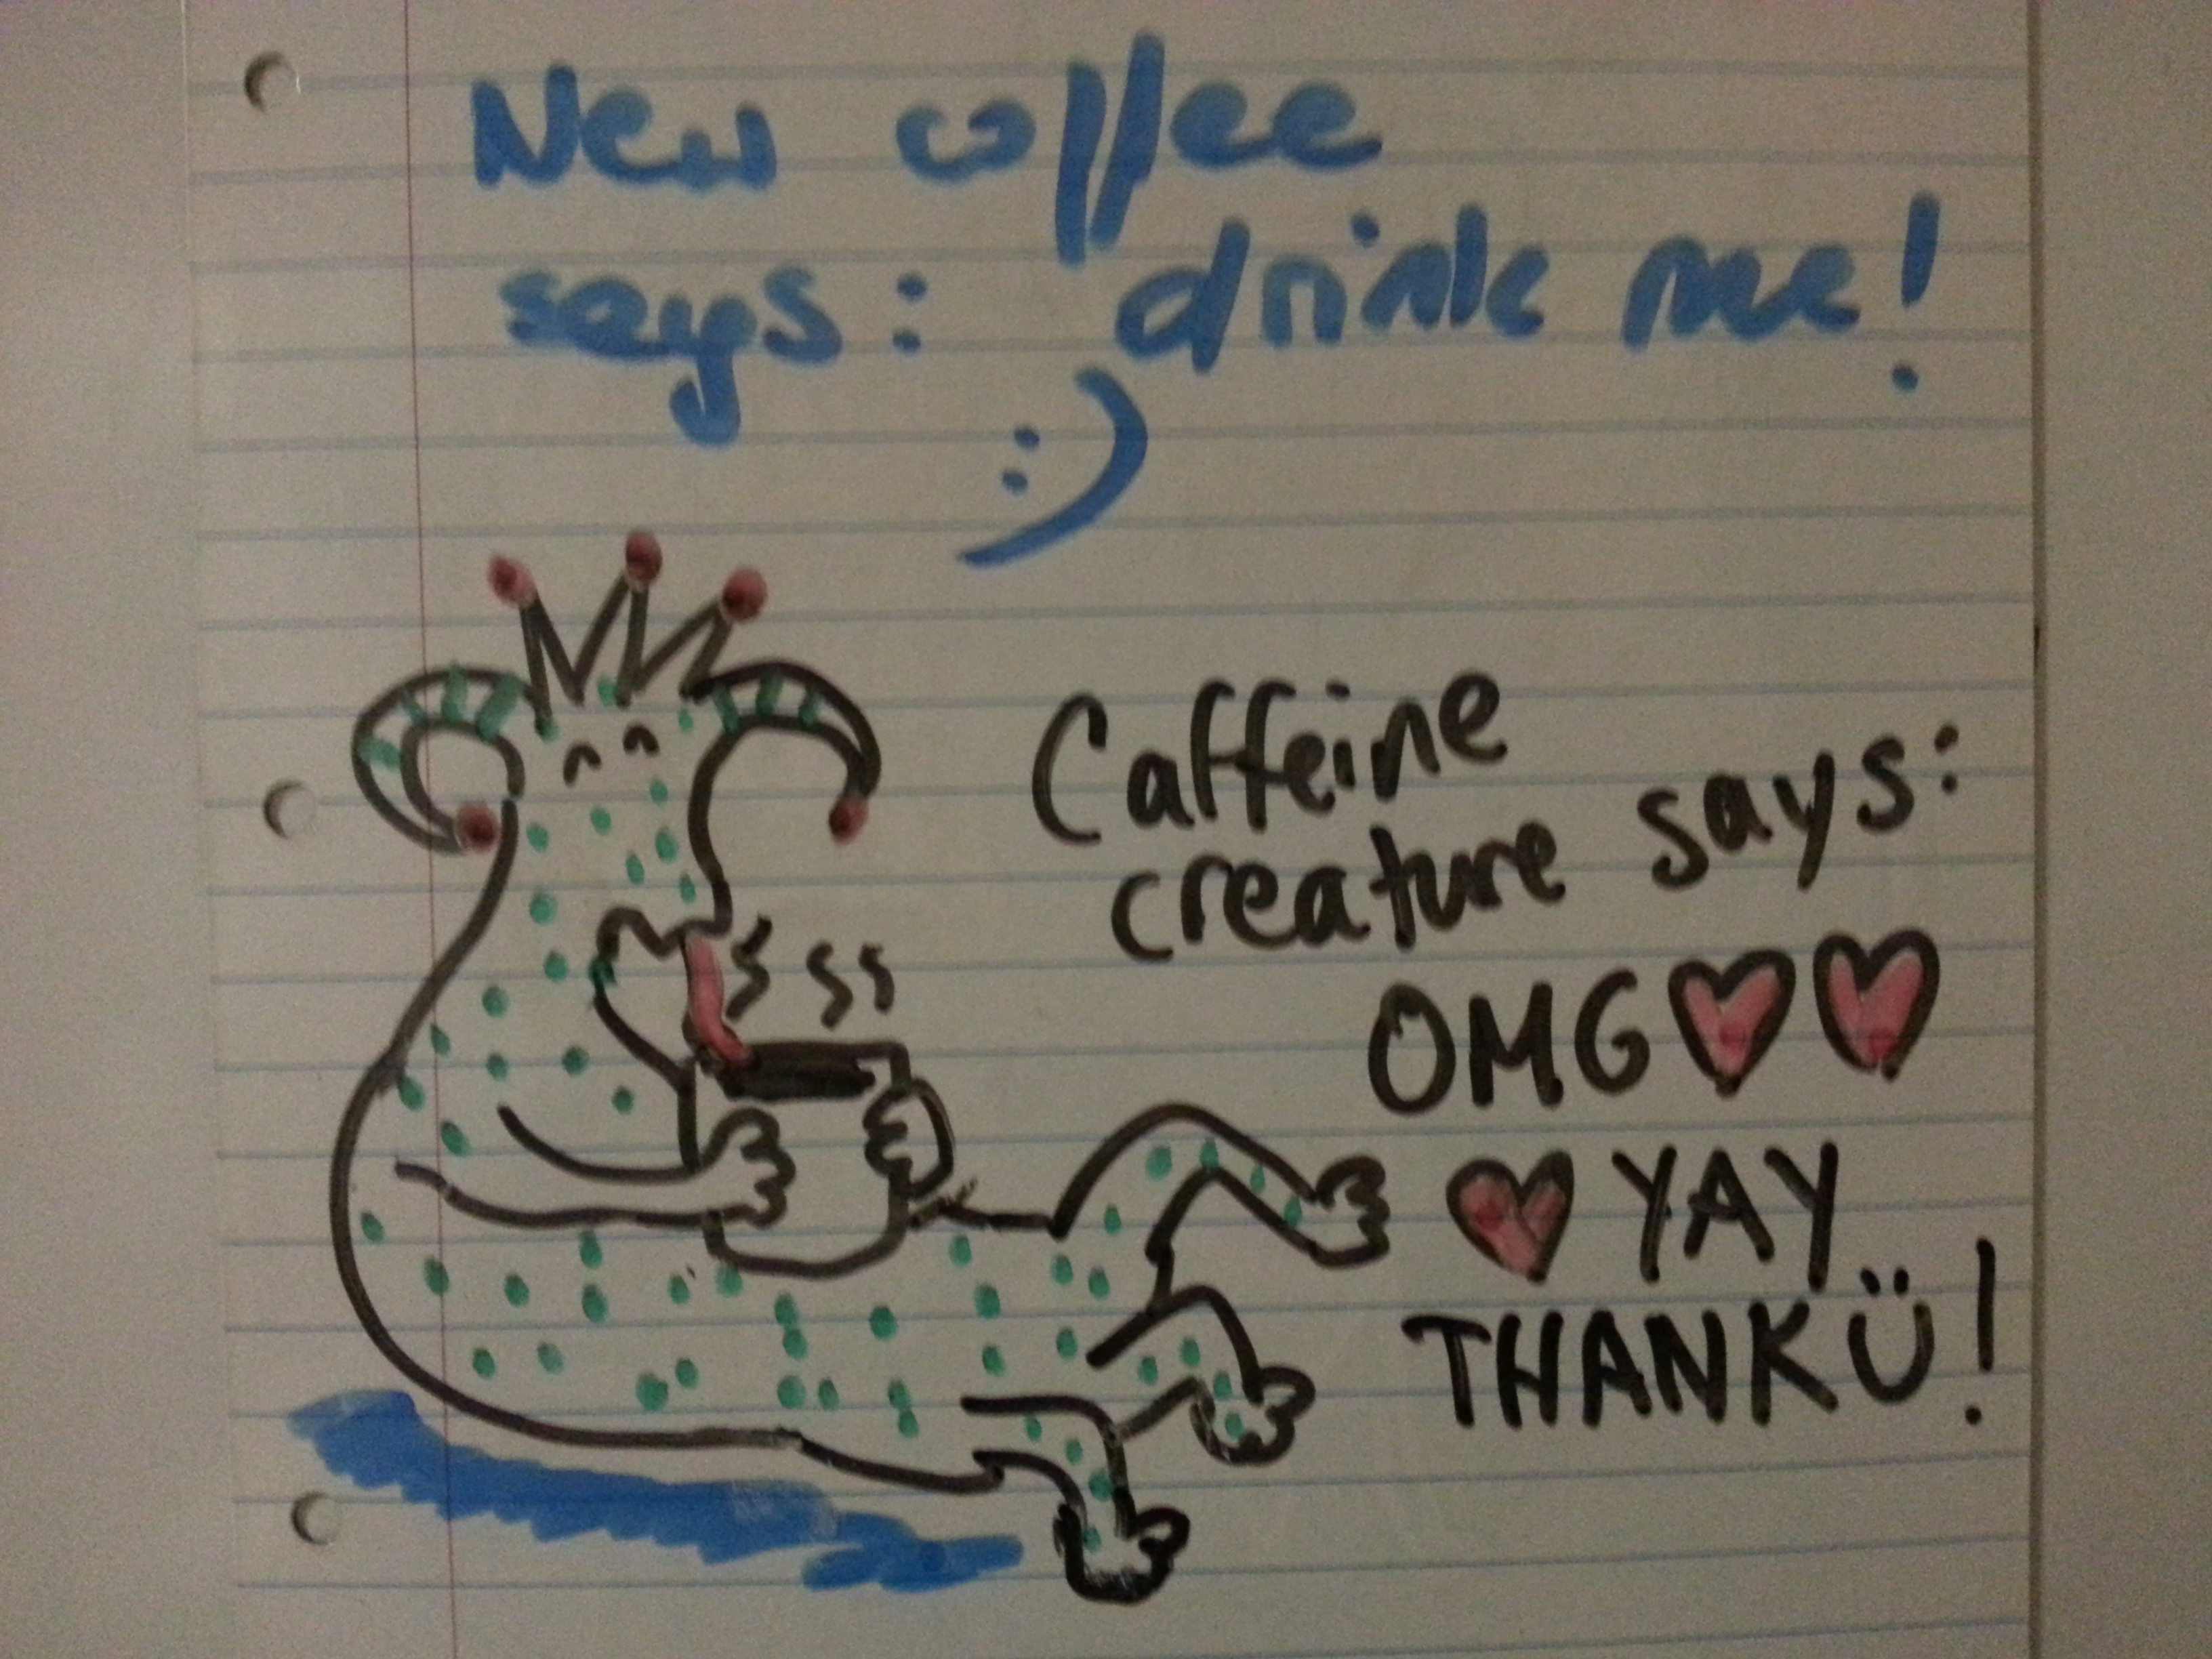 New coffee
says: drink me!
:)
Caffeine
creature says:
OMG ♥ ♥
♥ YAY
THANK Ü!